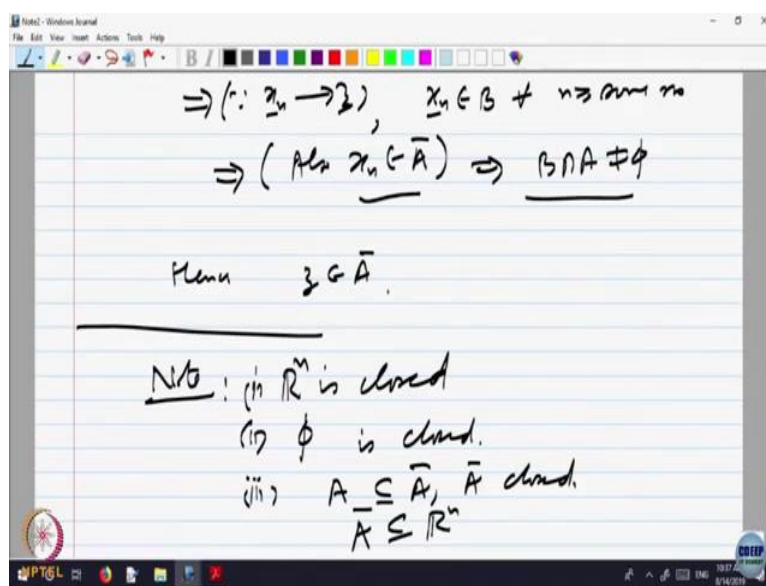 Note2 - Windows Journal
File Edit View Insert Actions Tools Help
⇒ (∵ x_n → z), x_n ∈ B ∀ n ≥ some n₀
⇒ ( Also x_n ∈ Ā ) ⇒ B ∩ A ≠ ϕ
Hence z ∈ Ā.
Note : (i) ℝⁿ is closed
(ii) ϕ is closed.
(iii) A ⊆ Ā, Ā closed.
Ā ⊆ ℝⁿ
NPTEL
CDEEP
ENG
8/14/2019